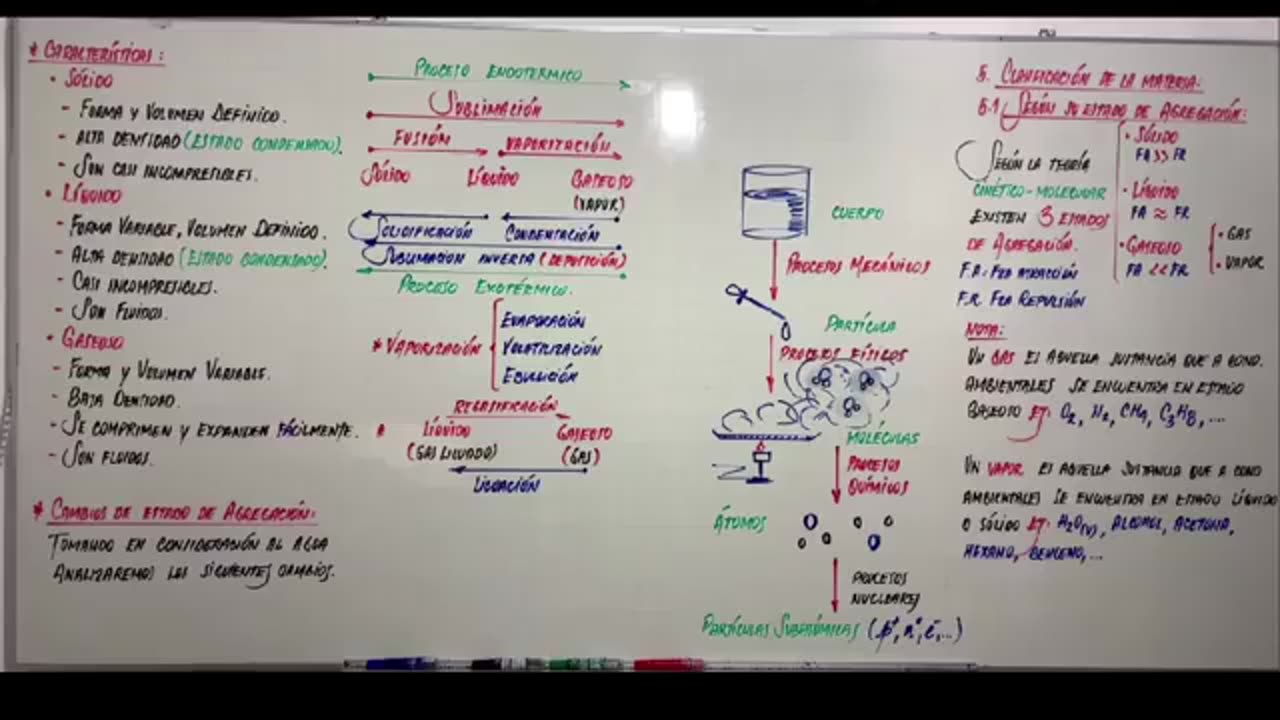 * CARACTERÍSTICAS:
• SÓLIDO
- FORMA Y VOLUMEN DEFINIDO.
- ALTA DENSIDAD (ESTADO CONDENSADO).
- SON CASI INCOMPRESIBLES.
• LÍQUIDO
- FORMA VARIABLE, VOLUMEN DEFINIDO.
- ALTA DENSIDAD (ESTADO CONDENSADO).
- CASI INCOMPRESIBLES.
- SON FLUIDOS.
• GASEOSO
- FORMA Y VOLUMEN VARIABLE.
- BAJA DENSIDAD.
- SE COMPRIMEN Y EXPANDEN FÁCILMENTE.
- SON FLUIDOS.
* CAMBIOS DE ESTADO DE AGREGACIÓN:
TOMANDO EN CONSIDERACIÓN AL AGUA
ANALIZAREMOS LOS SIGUIENTES CAMBIOS.
PROCESO ENDOTERMICO
SUBLIMACIÓN
FUSIÓN VAPORIZACIÓN
SÓLIDO LÍQUIDO GASEOSO
(VAPOR)
SOLIDIFICACIÓN CONDENSACIÓN
SUBLIMACION INVERSA (DEPOSICIÓN)
PROCESO EXOTÉRMICO.
* VAPORIZACIÓN
EVAPORACIÓN
VOLATILIZACIÓN
EBULLICIÓN
REGASIFICACIÓN
* LÍQUIDO GASEOSO
(GAS LICUADO) (GAS)
LICUACIÓN
CUERPO
PROCESOS MECÁNICOS
PARTÍCULA
PROCESOS FÍSICOS
MOLÉCULAS
PROCESOS
QUÍMICOS
ÁTOMOS
PROCESOS
NUCLEARES
PARTÍCULAS SUBATÓMICAS (p⁺, n°, e⁻, ...)
5. CLASIFICACIÓN DE LA MATERIA.
5.1 SEGÚN SU ESTADO DE AGREGACIÓN:
SEGÚN LA TEORÍA
CINÉTICO-MOLECULAR
EXISTEN 3 ESTADOS
DE AGREGACIÓN.
F.A: FZA ATRACCIÓN
F.R: FZA REPULSIÓN
• SÓLIDO
FA >> FR
• LÍQUIDO
FA ≈ FR
• GASEOSO
FA << FR
• GAS
• VAPOR
NOTA:
UN GAS ES AQUELLA SUSTANCIA QUE A COND.
AMBIENTALES SE ENCUENTRA EN ESTADO
GASEOSO EJ: O₂, N₂, CH₄, C₃H₈, ...
UN VAPOR ES AQUELLA SUSTANCIA QUE A COND
AMBIENTALES SE ENCUENTRA EN ESTADO LÍQUIDO
O SÓLIDO EJ: H₂O(V), ALCOHOL, ACETONA,
HEXANO, BENCENO, ...